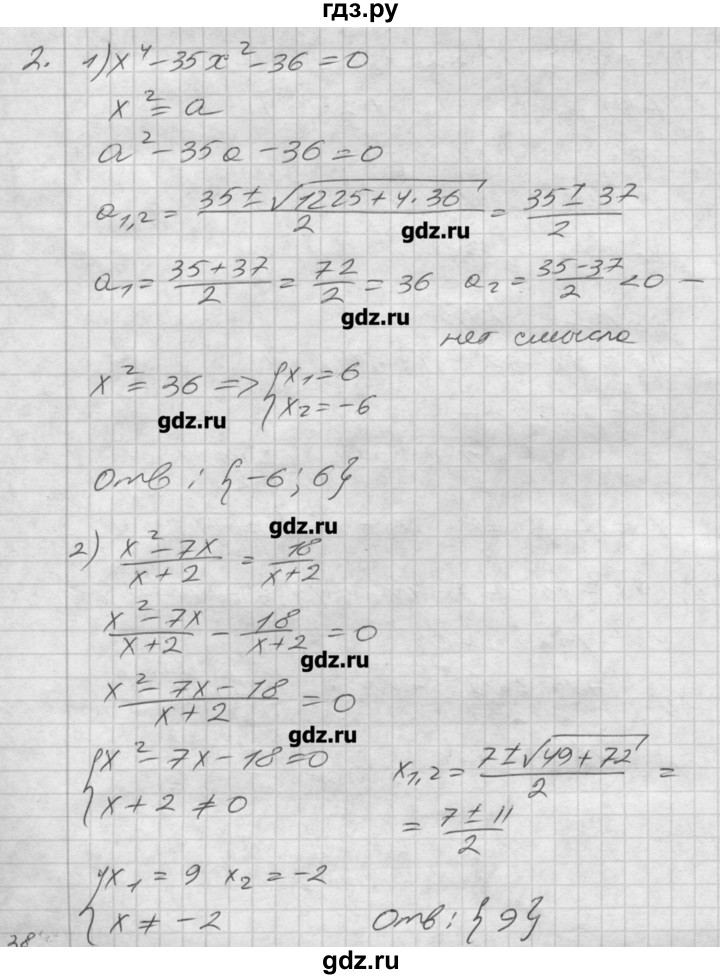 гдз.ру
2. 1) x⁴ - 35x² - 36 = 0
x² = a
a² - 35a - 36 = 0
a₁,₂ = (35 ± √(1225 + 4·36))/2 = (35 ± 37)/2
gdz.ru
a₁ = (35 + 37)/2 = 72/2 = 36 a₂ = (35 - 37)/2 < 0 —
gdz.ru
нет смысла
x² = 36 => { x₁ = 6
x₂ = -6
gdz.ru
Отв: {-6; 6}
gdz.ru
2) (x² - 7x)/(x + 2) = 18/(x + 2)
(x² - 7x)/(x + 2) - 18/(x + 2) = 0
gdz.ru
(x² - 7x - 18)/(x + 2) = 0
gdz.ru
{ x² - 7x - 18 = 0
x + 2 ≠ 0
x₁,₂ = (7 ± √(49 + 72))/2 =
= (7 ± 11)/2
{ x₁ = 9 x₂ = -2
x ≠ -2
Отв: {9}
38
gdz.ru